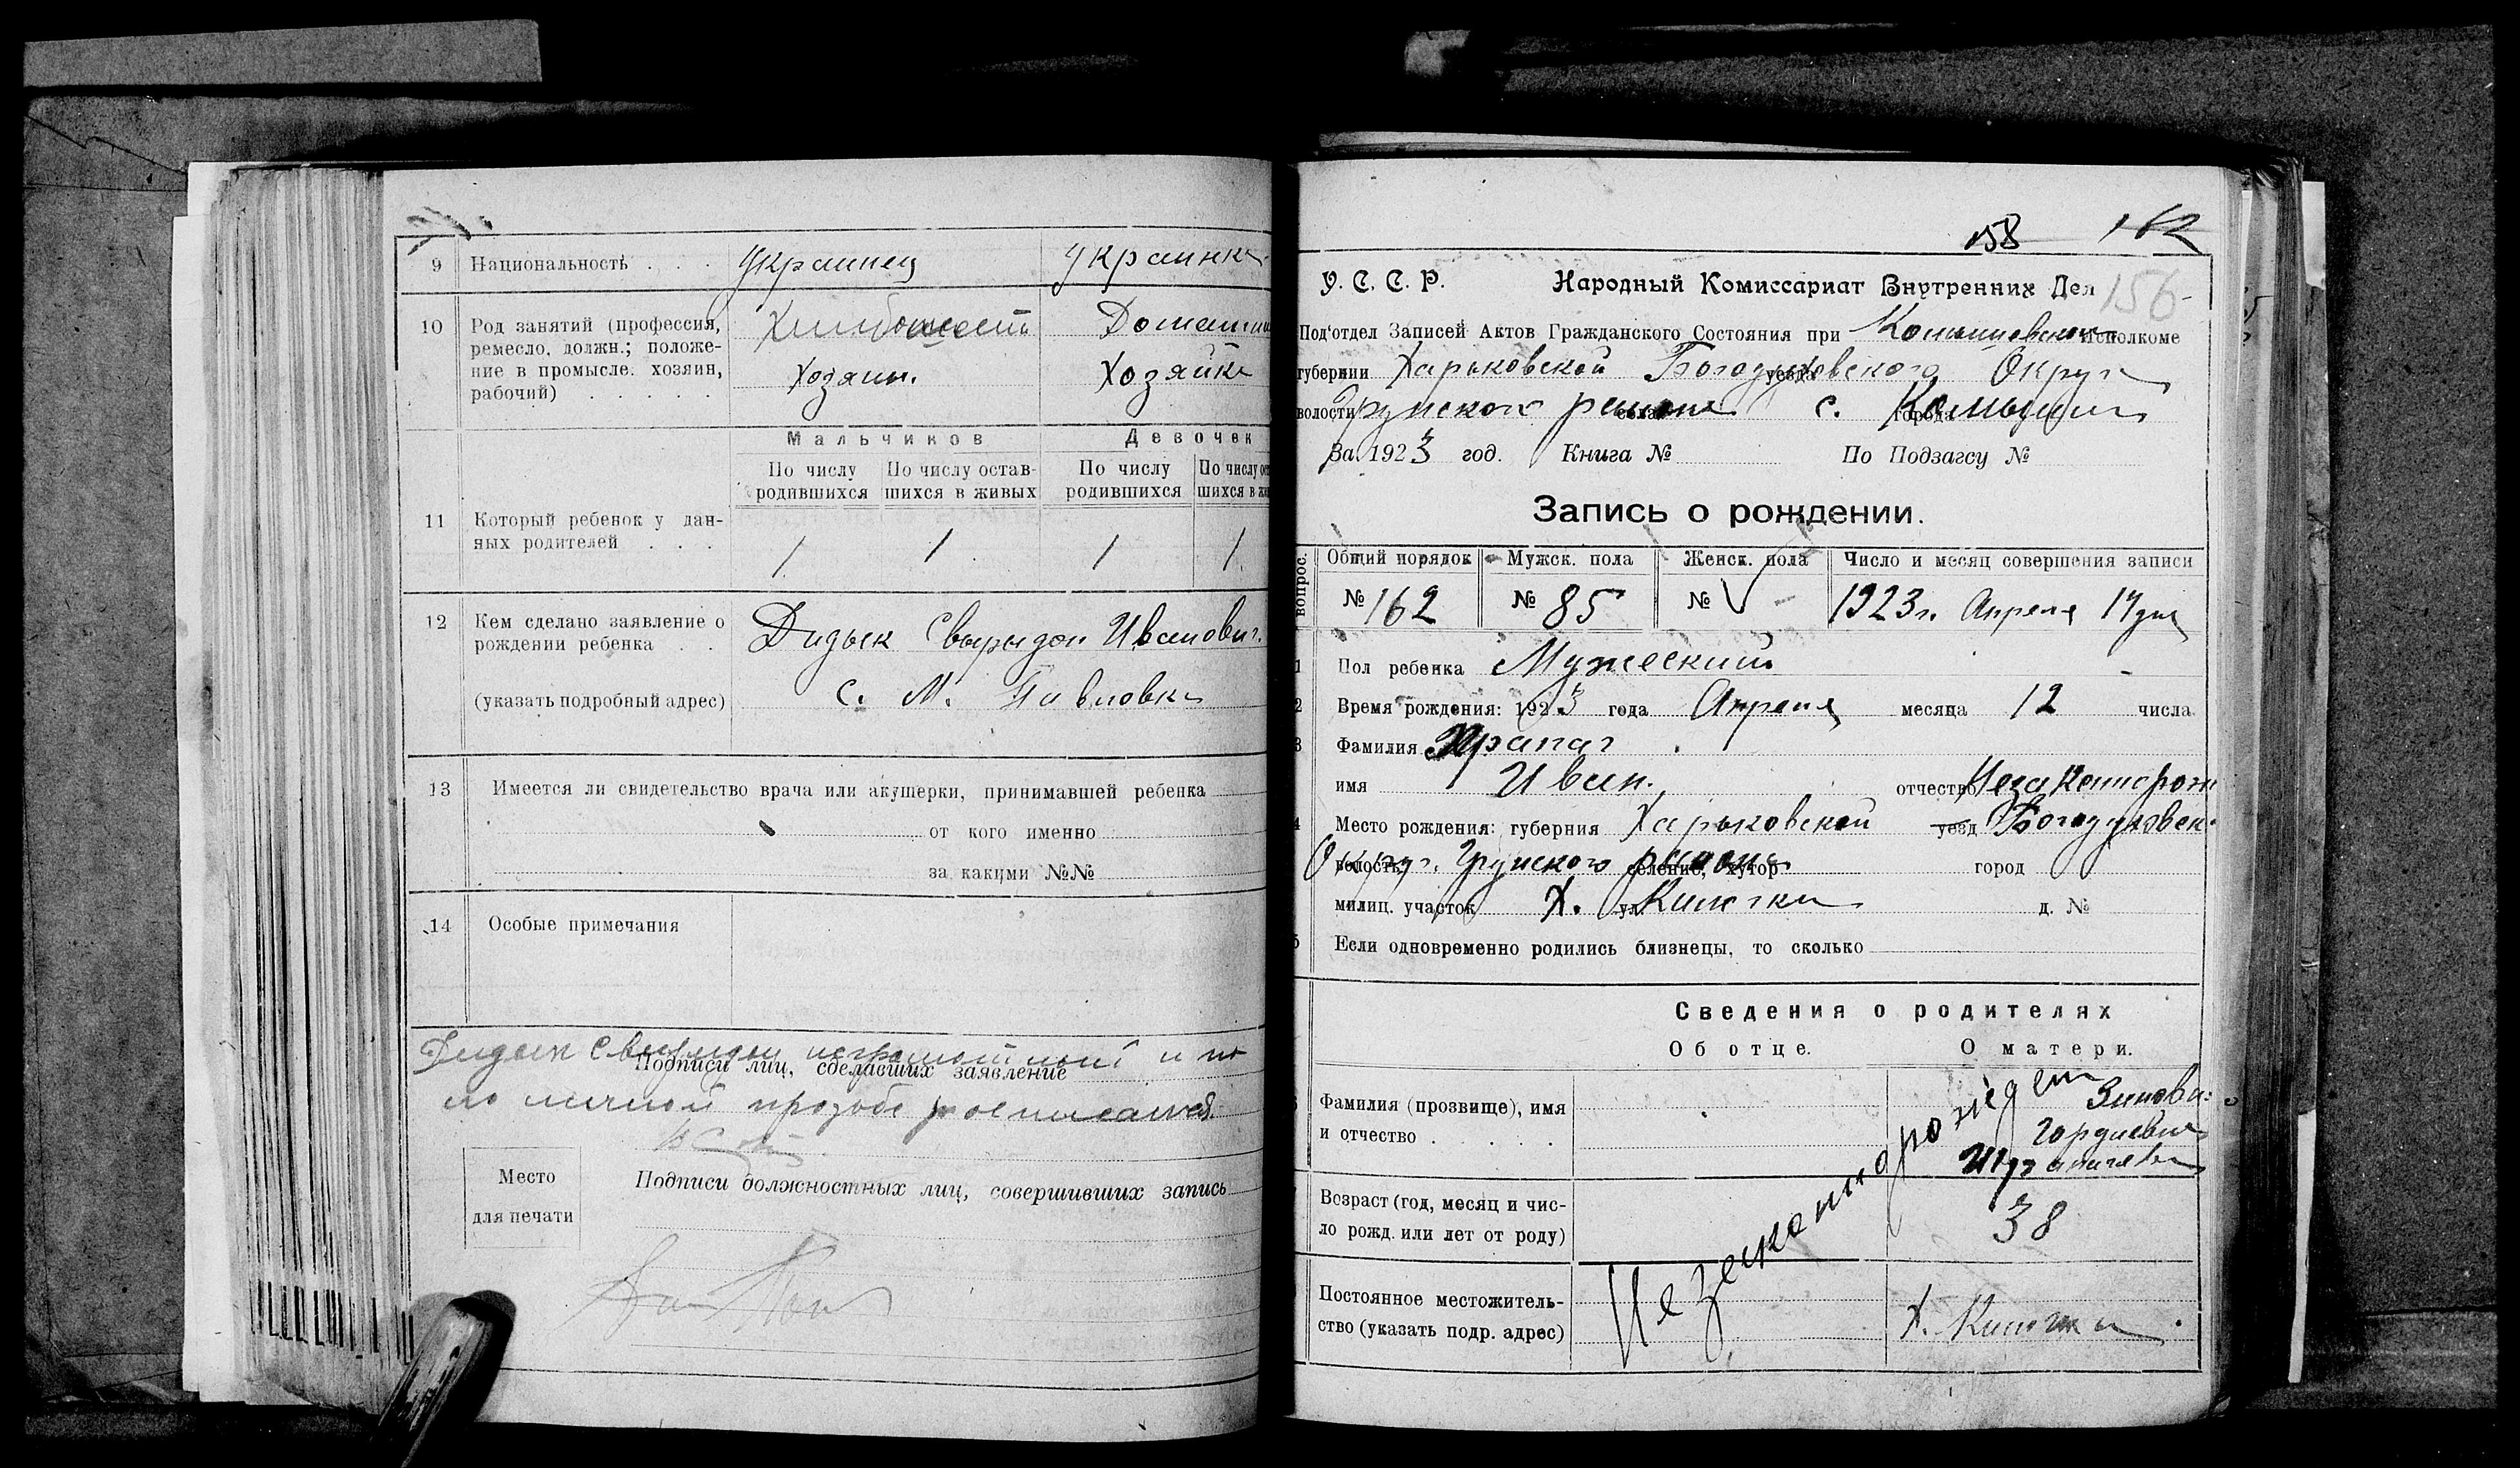 9 Национальность . . . Украинец Украинка
10 Род занятий (профессия, Хлибопашест Домашня
ремесло, должн.; положе-
ние в промысле: хозяин, Хозяин. Хозяйка
рабочий) . . . . .
Мальчиков Девочек
По числу По числу остав- По числу По числу ос
родившихся шихся в живых родившихся шихся в жи
11 Который ребенок у дан-
ных родителей . . . 1 1 1 1.
12 Кем сделано заявление о Дидык Свыридон Иванович.
рождении ребенка . .
(указать подробный адрес) с. М. Павловка
13 Имеется ли свидетельство врача или акушерки, принимавшей ребенка
от кого именно
за какими №№
14 Особые примечания
Дидык Свыридон неграмотный и по
Подписи лиц, сделавших заявление
его личной прозьбе росписался
Место Подписи должностных лиц, совершивших запись
для печати
158 162
У. С. С. Р. Народный Комиссариат Внутренних Дел 156
Под'отдел Записей Актов Гражданского Состояния при Комышевском исполкоме
губернии Харьковской уезда Богодуховского Округа
волости Грунского района села с. города Комыши
За 1923 год. Книга № По Подзагсу №
Запись о рождении.
вопрос. Общий порядок Мужск. пола Женск. пола Число и месяц совершения записи
№ 162 № 85 № 1923 г. Апреля 17 дня
1 Пол ребенка Мужеский
2 Время рождения: 1923 года Апреля месяца 12 числа
3 Фамилия Храпач
имя Иван. отчество Незаконорож
4 Место рождения: губерния Харьковской уезд Богодуховск.
волость Округ. Грунского района селение, хутор город
милиц. участок Х. ул. д. №
5 Если одновременно родились близнецы, то сколько
Сведения о родителях
Об отце. О матери.
Незаконнорожден
Фамилия (прозвище), имя Зинови
и отчество . . . . Гордиевна
Возраст (год, месяц и чис- 38
ло рожд. или лет от роду)
Постоянное местожитель- Х.
ство (указать подр. адрес)